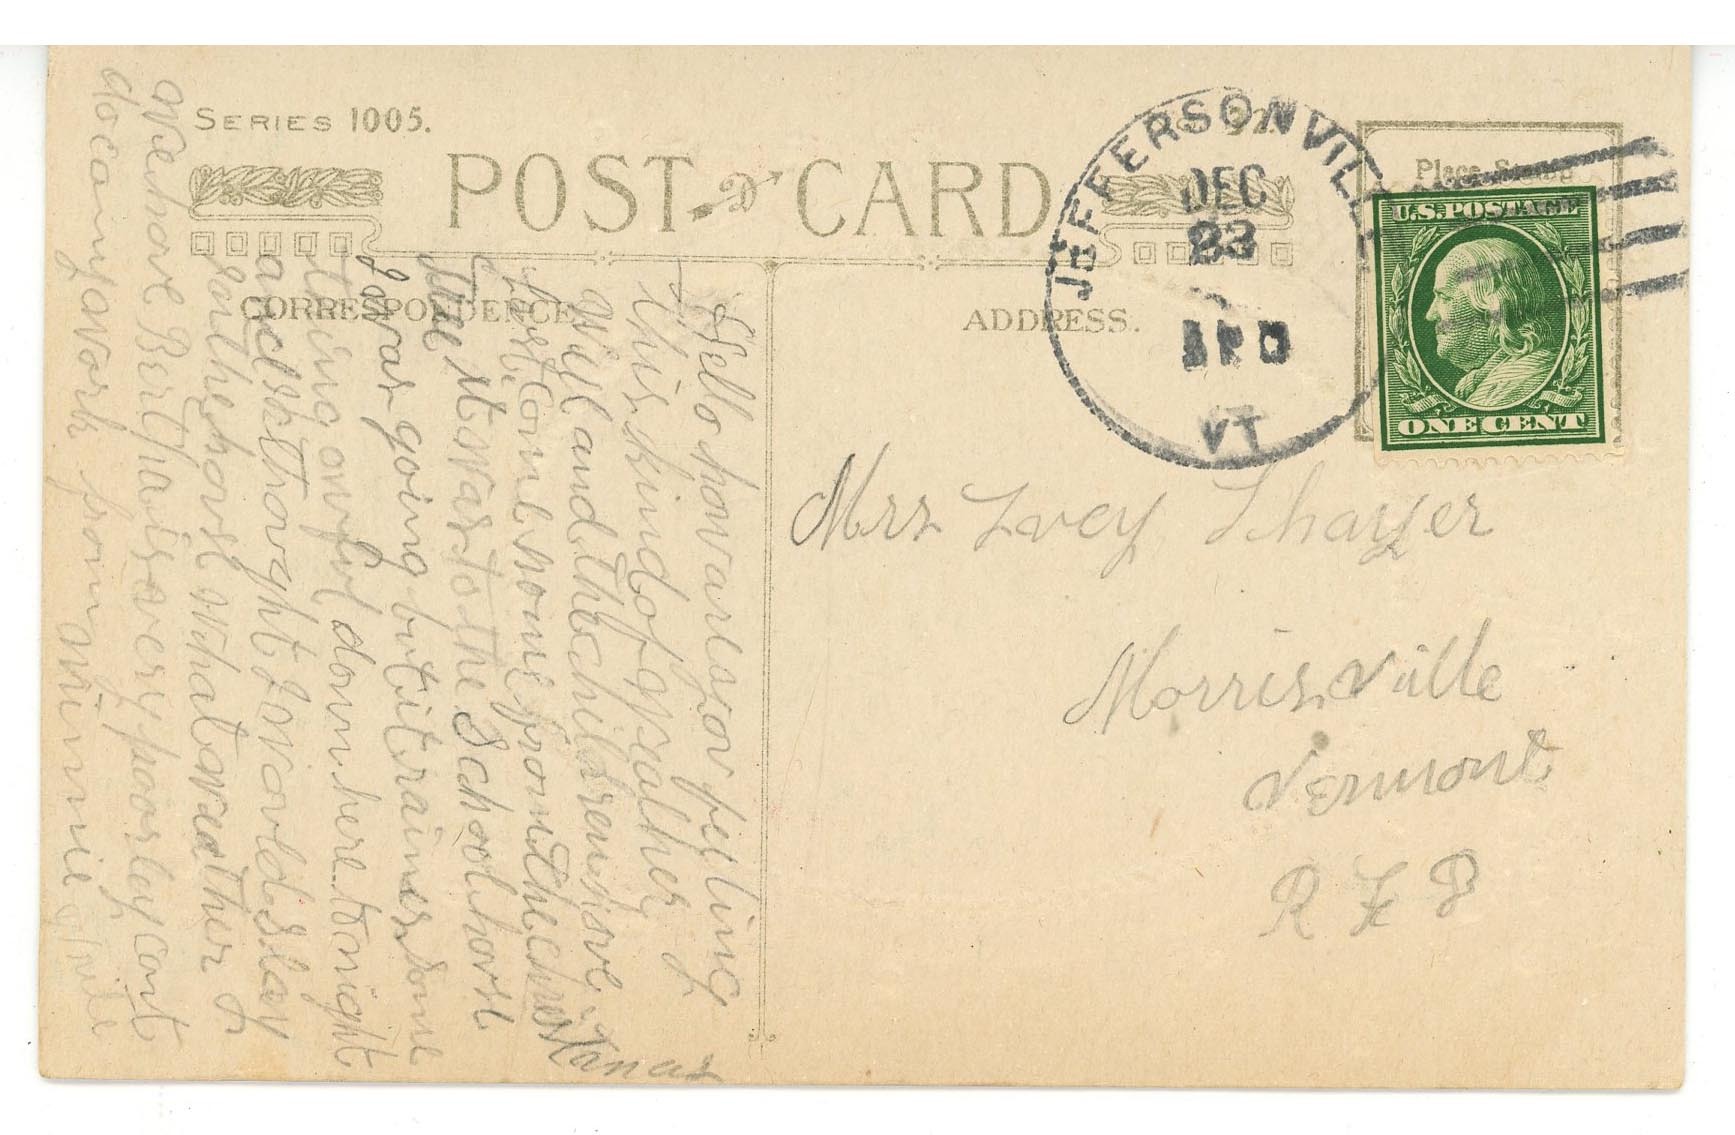 SERIES 1005.
POST CARD
CORRESPONDENCE
ADDRESS.
Place Stamp
JEFFERSONVILLE
DEC
23
VT
U.S. POSTAGE
ONE CENT
Mrs Lucy Thayer
Morrisville
Vermont
R F D
Hello how are you feeling
this kind of weather
Will and the children have
just come home from the christ
mas
tree it was to the School house
I was going but it rain
ing awful down here to night
and so I thought I would stay
in the house what weather
We have Bertha is very poorly cant
do any work from
Minnie